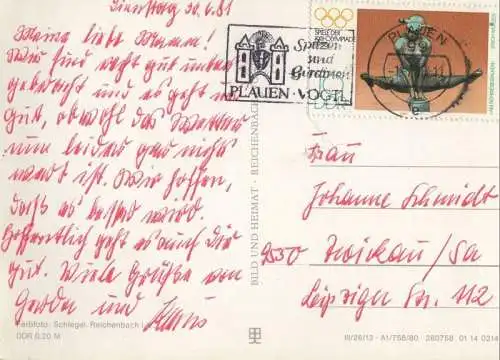 Dienstag 30.6.81
Meine liebe Mamm!
Wir sind recht gut unter
gebracht und es geht uns
gut, obwohl das Wetter
nun leider gar nicht
warm ist. Wir hoffen,
daß es besser wird.
Hoffentlich geht es auch Dir
gut. Viele Grüße von
Gerda und Hans
Farbfoto: Schlegel, Reichenbach
DDR 0,20 M
BILD UND HEIMAT · REICHENBACH
SPIELE DER
OLYMPIADE
Spitzen
und
Gardinen
PLAUEN · VOGTL.
PLAUEN
DDR
Frau
Johanne Schmidt
9550 Zwickau/Sa
Leipziger Str. 112
III/26/13 · A1/756/80 260758 01 14 0314